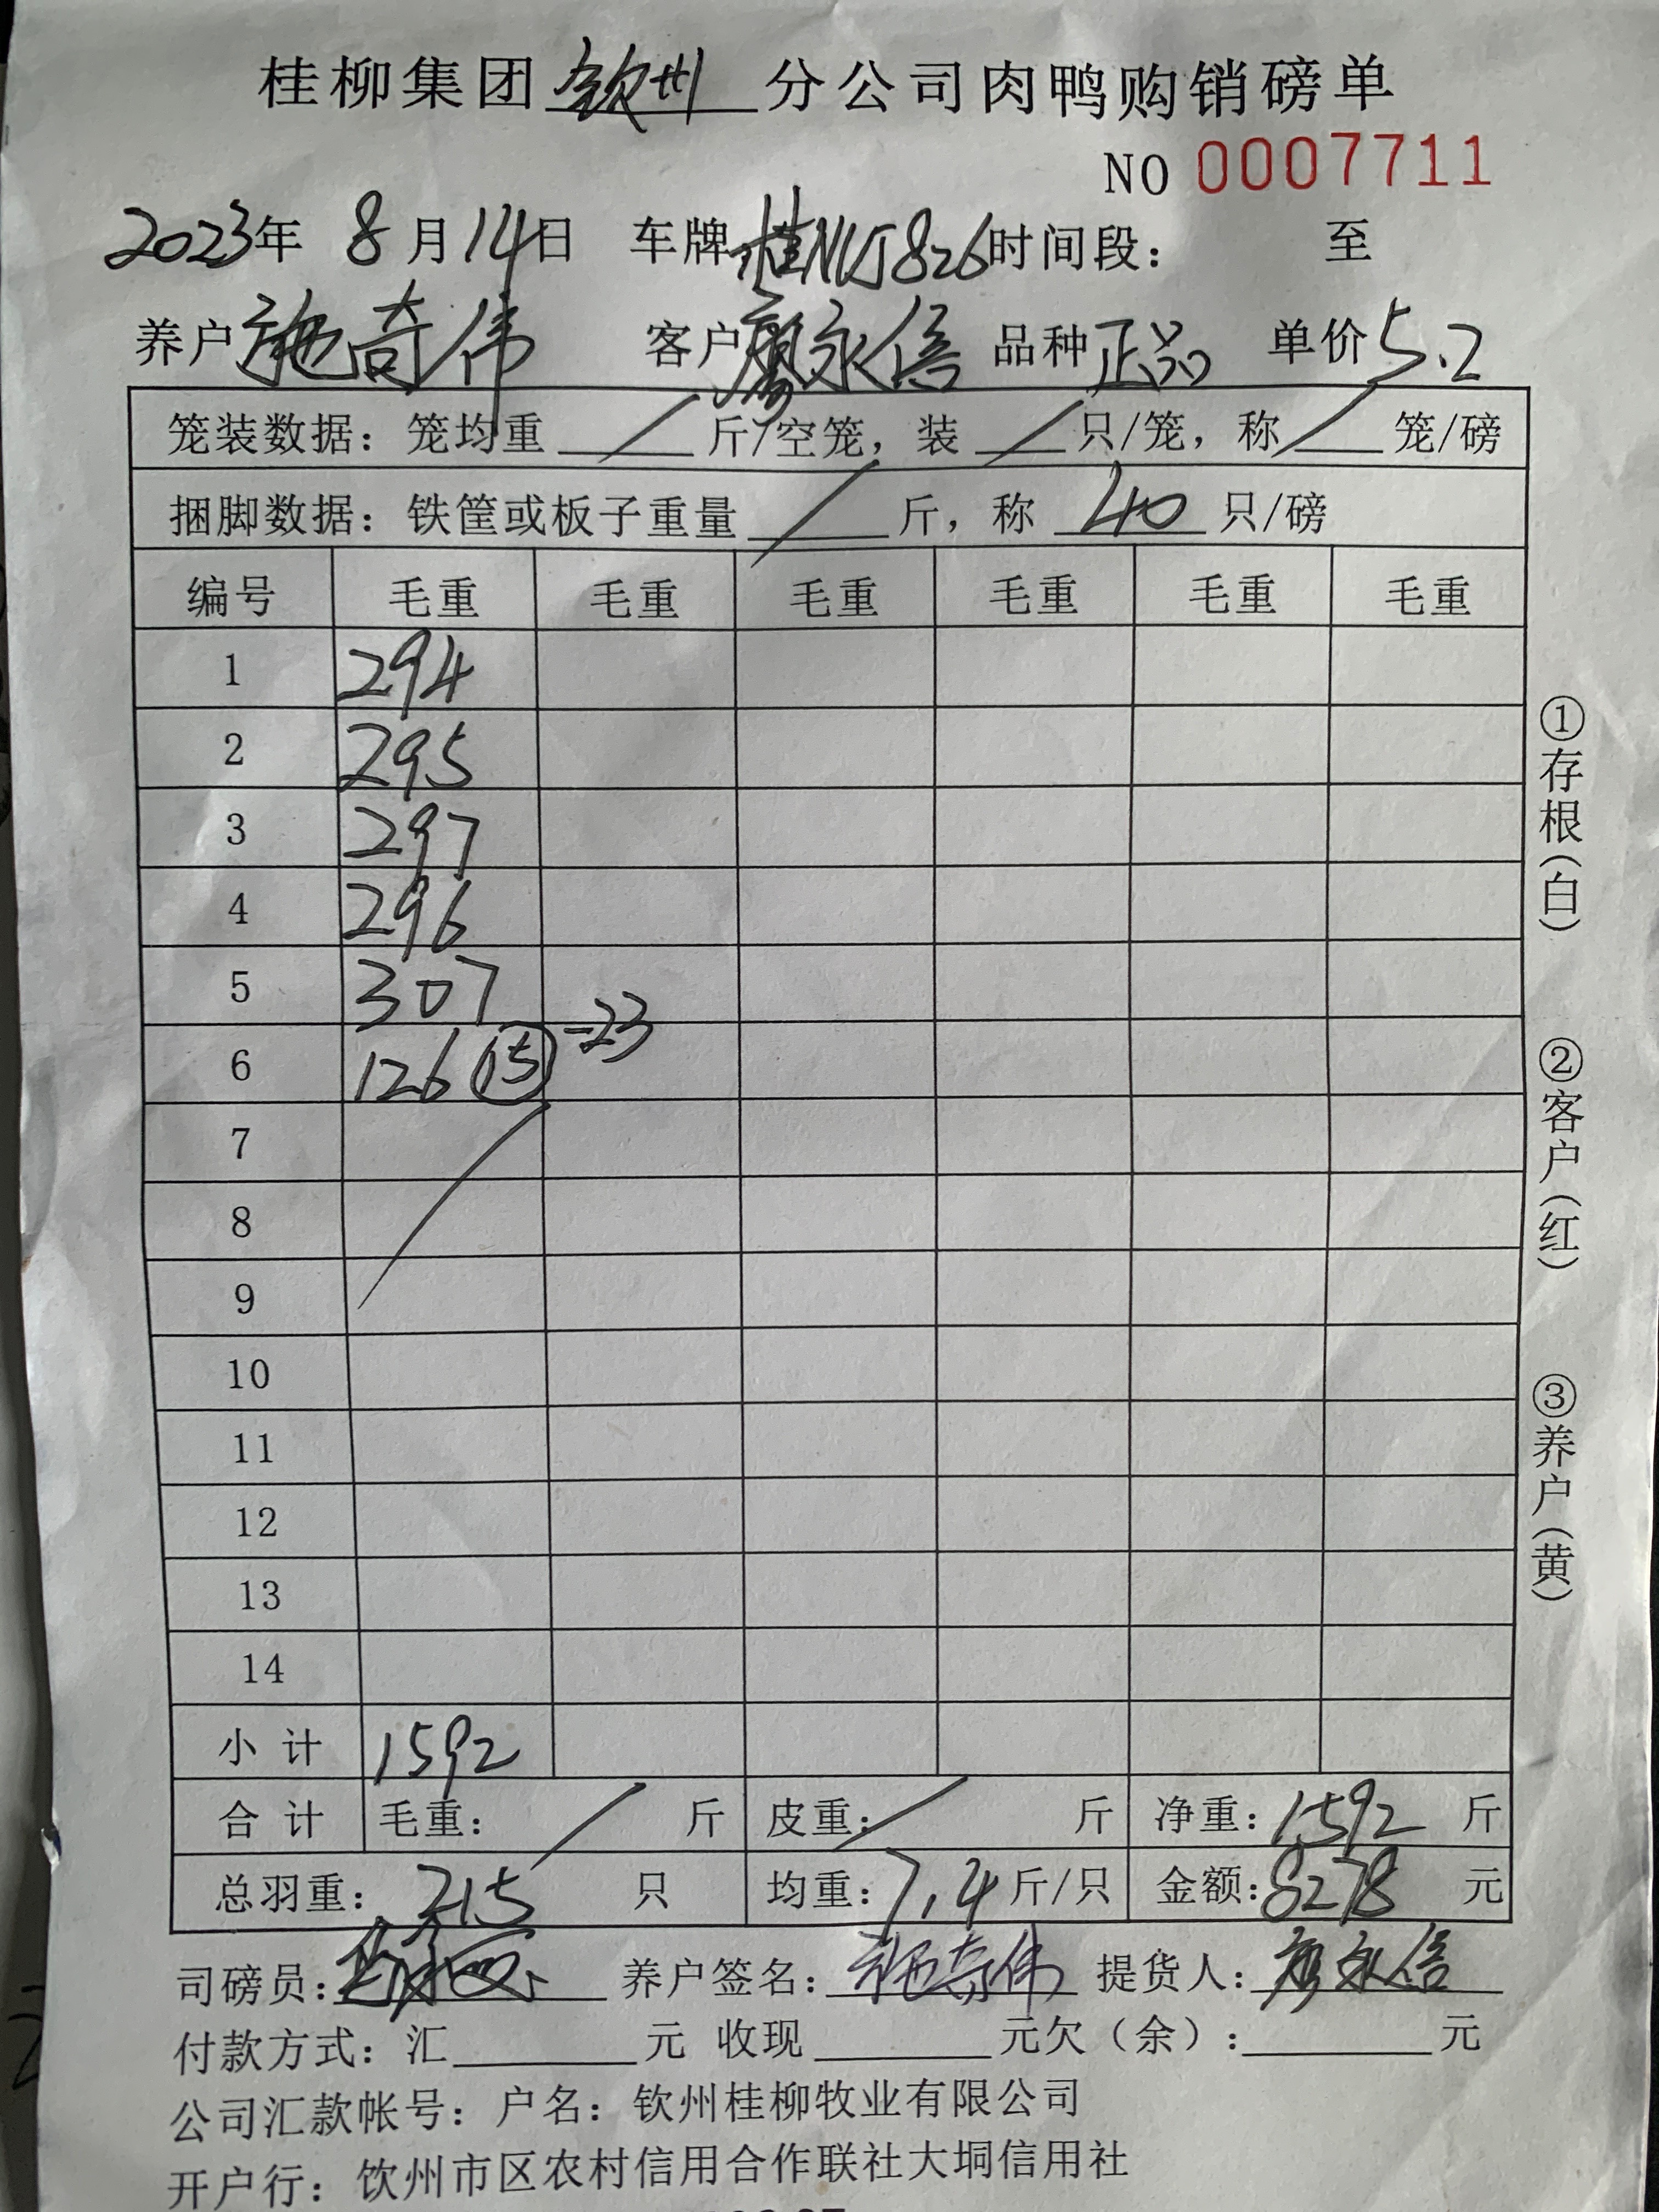 桂柳集团钦州分公司肉鸭购销磅单
NO 0007711
2023年 8月14日 车牌桂NUJ826时间段： 至
养户施奇伟 客户廖永信 品种正品 单价5.2
笼装数据：笼均重／斤/空笼，装／只/笼，称／笼/磅
捆脚数据：铁筐或板子重量／斤，称 40 只/磅
编号 毛重 毛重 毛重 毛重 毛重 毛重
1 294
2 295
3 297
4 296
5 307
6 126 ⑮ -23
7
8
9
10
11
12
13
14
小计 1592
合计 毛重：／斤 皮重：／斤 净重：1592 斤
总羽重：215 只 均重：7.4斤/只 金额：8278 元
司磅员： 养户签名：施奇伟 提货人：廖永信
付款方式：汇 元 收现 元欠（余）： 元
公司汇款帐号：户名：钦州桂柳牧业有限公司
开户行：钦州市区农村信用合作联社大垌信用社
①存根（白）
②客户（红）
③养户（黄）